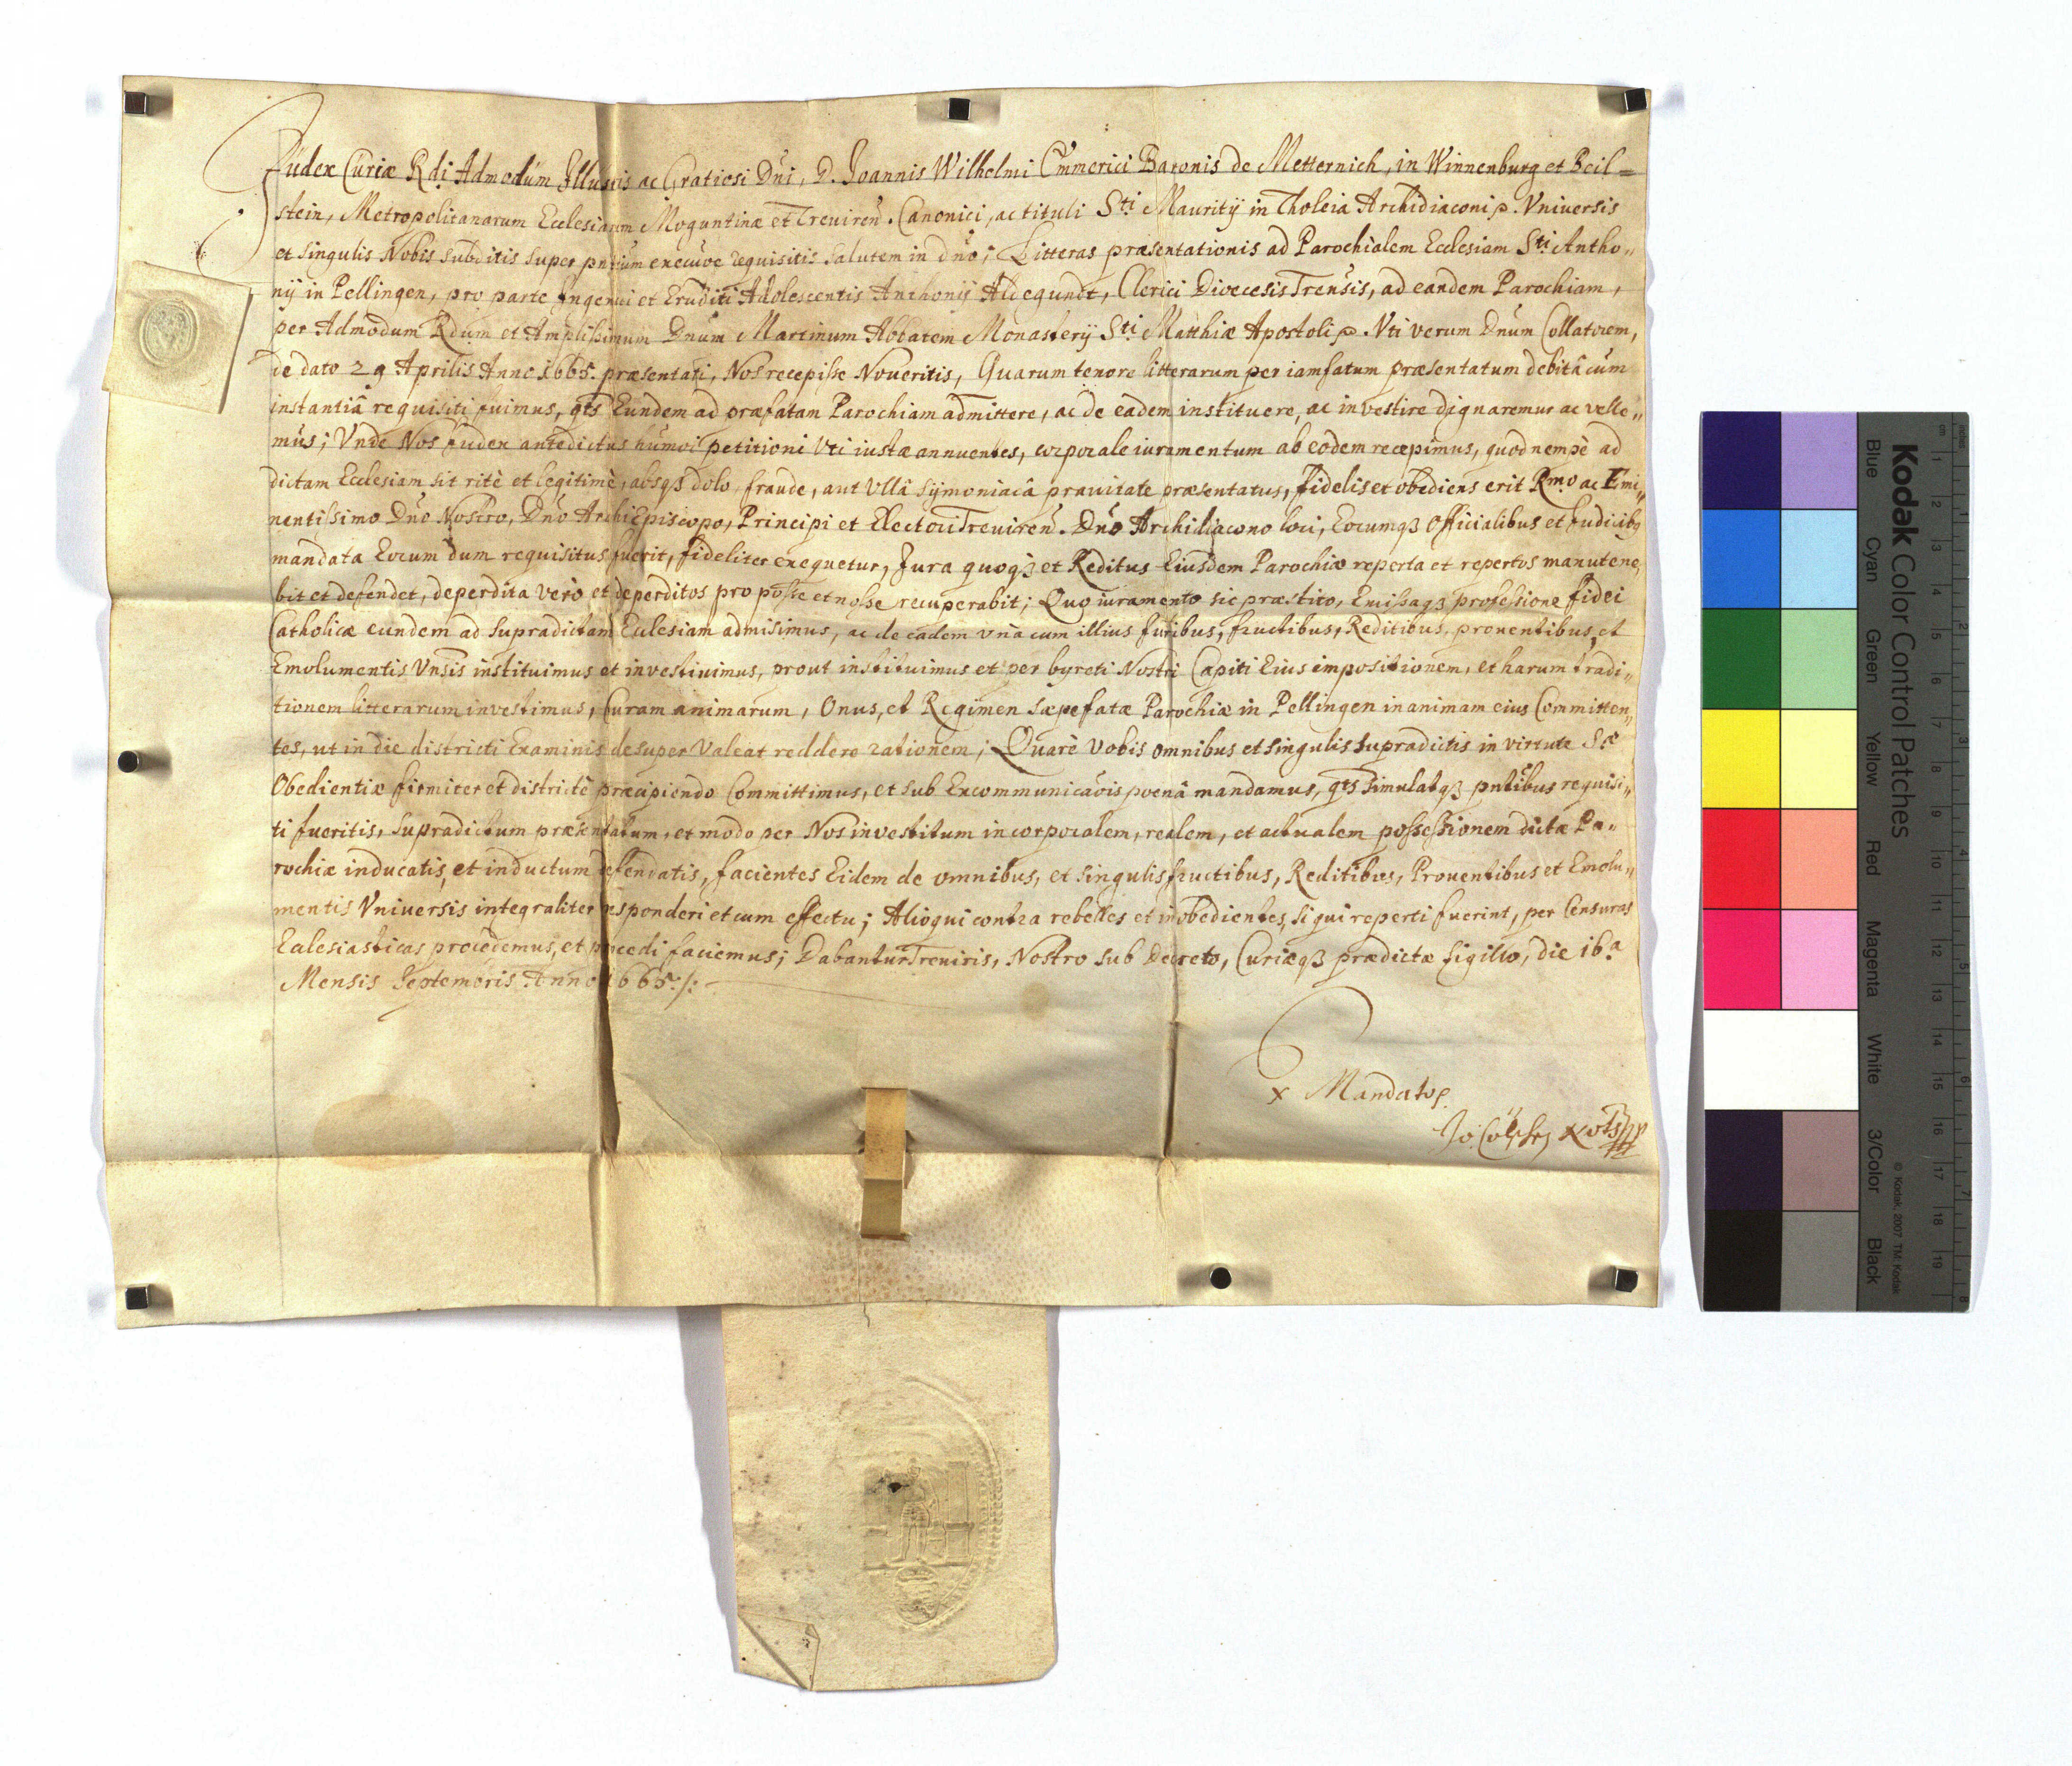 Iudex Curiæ Rdi Admodum Illustris ac Gratiosi Dni, D. Ioannis Wilhelmi Emmerici Baronis de Metternich, in Winnenburg et Beil=
stein, Metropolitanarum Ecclesiarum Moguntinæ et Treviren. Canonici, ac tituli Sti Mauritij in Tholeia Archidiaconi p. Vniversis
et singulis Nobis subditis super pntium executioe requisitis salutem in dno; Litteras præsentationis ad Parochialem Ecclesiam Sti Antho„
nij in Pellingen, pro parte Ingenui et Eruditi Adolescentis Anthonij Aldegundt, Clerici Diœcesis Trensis, ad eandem Parochiam,
per Admodum Rdum et Amplissimum Dnum Martinum Abbatem Monasterij Sti Matthiæ Apostoli p. Vti verum Dnum Collatorem,
de dato 29 Aprilis Anno 1665. præsentati, Nos recepisse Noveritis, Quarum tenore litterarum per iamfatum præsentatum debitâ cum
instantiâ requisiti fuimus, qts Eundem ad præfatam Parochiam admittere, ac de eadem instituere, ac investire dignaremur ac velle„
mus; Vnde Nos Iudex antedictus humoi petitioni Vti iustæ annuentes, corporale iuramentum ab eodem recepimus, quod nempè ad
dictam Ecclesiam sit ritè et legitimè, absqз dolo, fraude, aut Vllâ symoniacâ pravitate præsentatus, fidelis et obediens erit Rmo ac Emi„
nentissimo Dno Nostro, Dno ArchiEpiscopo, Principi et Electori Treviren. Dno Archidiacono loci, Eorumqз Officialibus et Iudicibз
mandata Eorum dum requisitus fuerit, fideliter exequetur, Jura quoqз et Reditus Eiusdem Parochiæ reperta et repertos manutene„
bit et defendet, deperdita verò et deperditos pro posse et nosse recuperabit; Quo iuramento sic præstito, Emissaqз professione fidei
Catholicæ eundem ad supradictam Ecclesiam admisimus, ac de eadem vnà cum illius Iuribus, fructibus, Reditibus, proventibus et
Emolumentis Vnsis instituimus et investivimus, prout instituimus et per byreti Nostri Capiti Eius impositionem, et harum tradi„
tionem litterarum investimus, Curam animarum, Onus, et Regimen sæpefatæ Parochiæ in Pellingen in animam eius Committen„
tes, ut in die districti Examinis desuper Valeat reddere rationem; Quarè vobis omnibus et singulis supradictis in virtute Stæ
Obedientiæ firmiter et districtè præcipiendo Committimus, et sub Excommunicaois poenâ mandamus, qts simulatqз pntibus requisi„
ti fueritis, supradictum præsentatum, et modo per Nos investitum in corporalem, realem, et actualem possessionem dictæ Pa„
rochiæ inducatis, et inductum defendatis, facientes Eidem de omnibus, et singulis fructibus, Reditibus, Proventibus et Emolu„
mentis Vniversis integraliter responderi et cum effectu; Alioqui contra rebelles et inobedientes, si qui reperti fuerint, per Censuras
Ecclesiasticas procedemus, et procedi faciemus; Dabantur Treviris, Nostro sub Decreto, Curiæqз prædictæ sigillo, die 16.a
Mensis Septembris Anno 1665 ./:
x Mandato p.
Kodak Color Control Patches
Blue Cyan Green Yellow Red Magenta White 3/Color Black
© Kodak, 2007 TM: Kodak
cm 1 2 3 4 5 6 7 8 9 10 11 12 13 14 15 16 17 18 19
inches 1 2 3 4 5 6 7 8